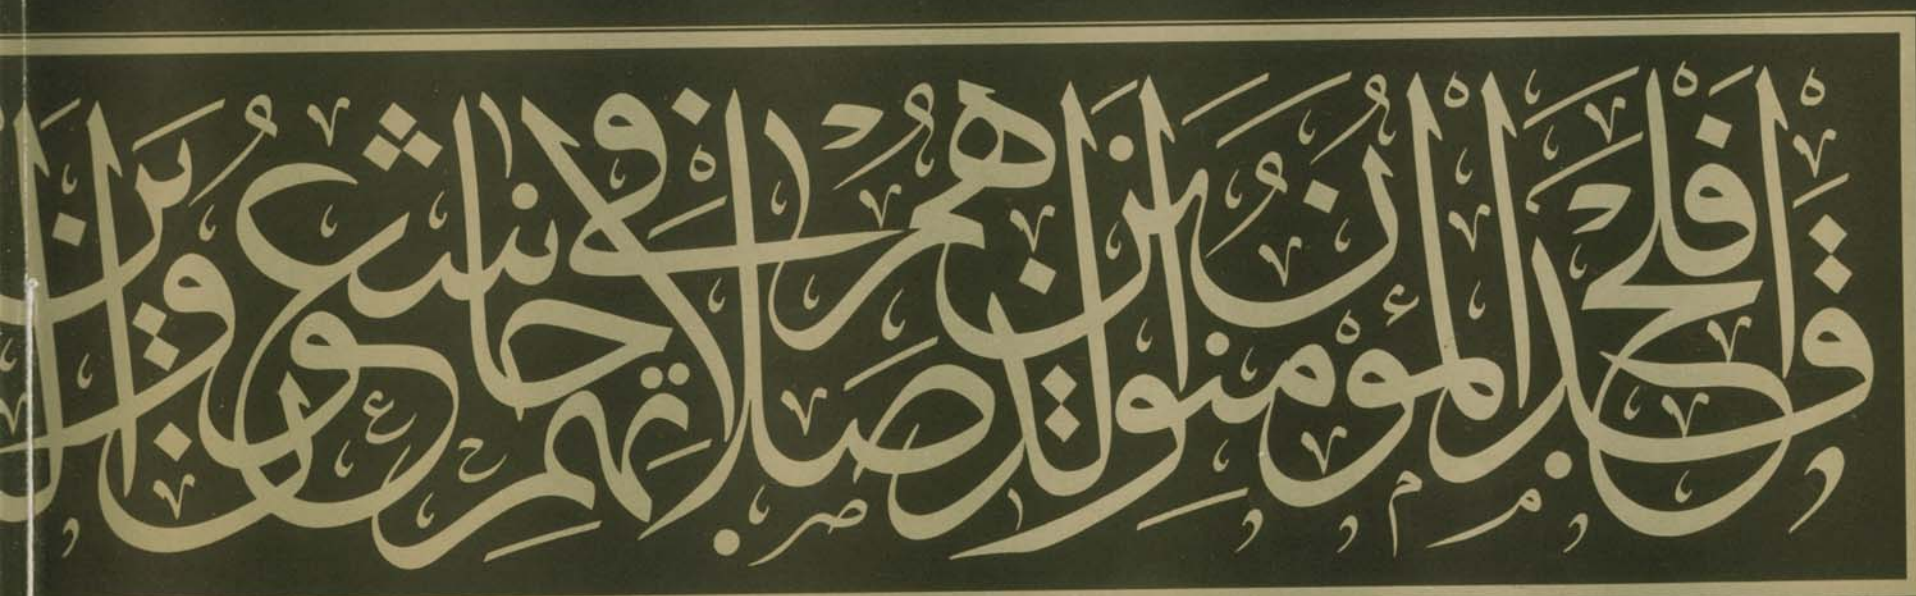 قَدْ أَفْلَحَ الْمُؤْمِنُونَ الَّذِينَ هُمْ فِي صَلَاتِهِمْ خَاشِعُونَ وَالَّذِينَ